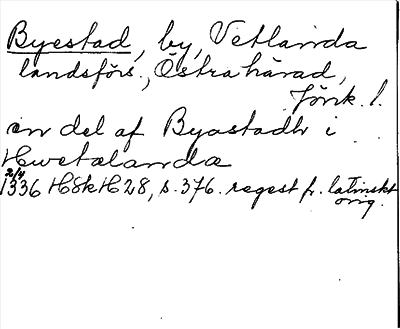 Byestad, by, Vetlanda
landsförs., Östra härad,
Jönk. l.
en del af Byastadh i
Hwetalanda
2/4
1336 HSkH 28, s. 376. regest fr. latinskt
orig.